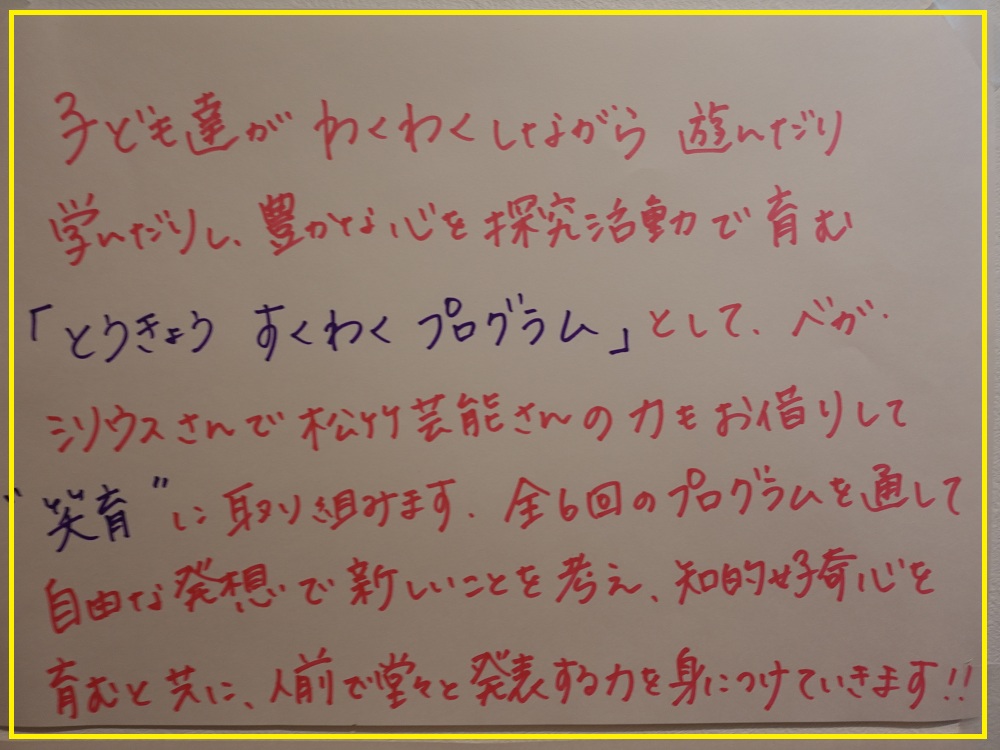 子ども達が わくわくしながら 遊んだり
学んだりし、豊かな心を探究活動で育む
「とうきょう すくわく プログラム」として、ベガ・
シリウスさんで松竹芸能さんの力もお借りして
"笑育"に取り組みます。全6回のプログラムを通して
自由な発想で新しいことを考え、知的好奇心を
育むと共に、人前で堂々と発表する力を身につけていきます!!